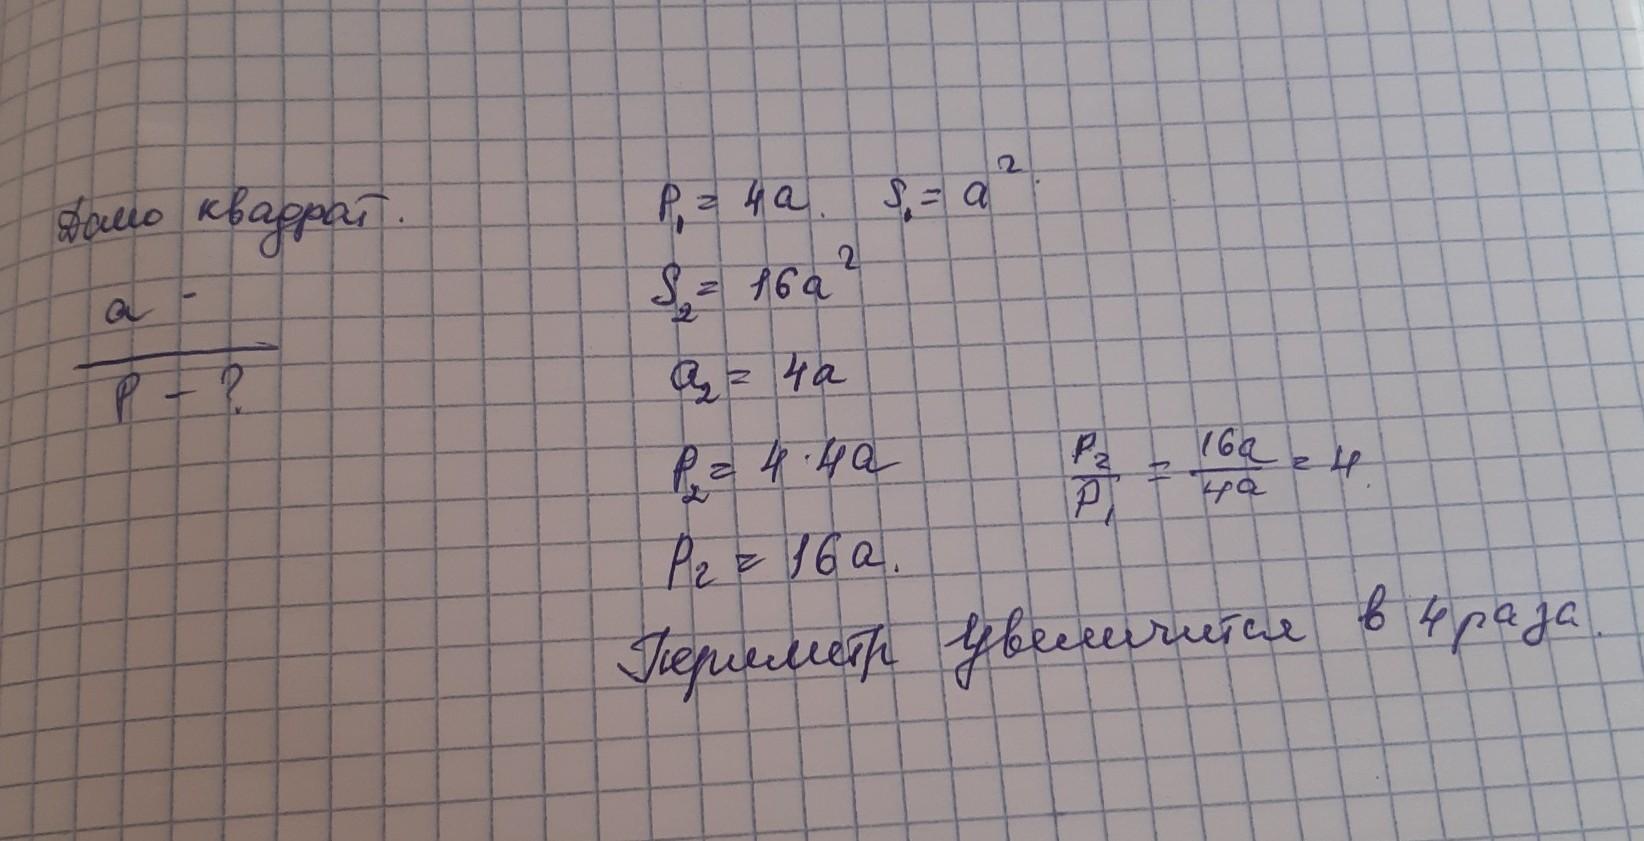 Дано квадрат.
a -
P - ?
P₁ = 4a. S₁ = a².
S₂ = 16a²
a₂ = 4a
P₂ = 4·4a
P₂/P₁ = 16a/4a = 4.
P₂ = 16a.
Периметр увеличится в 4 раза.